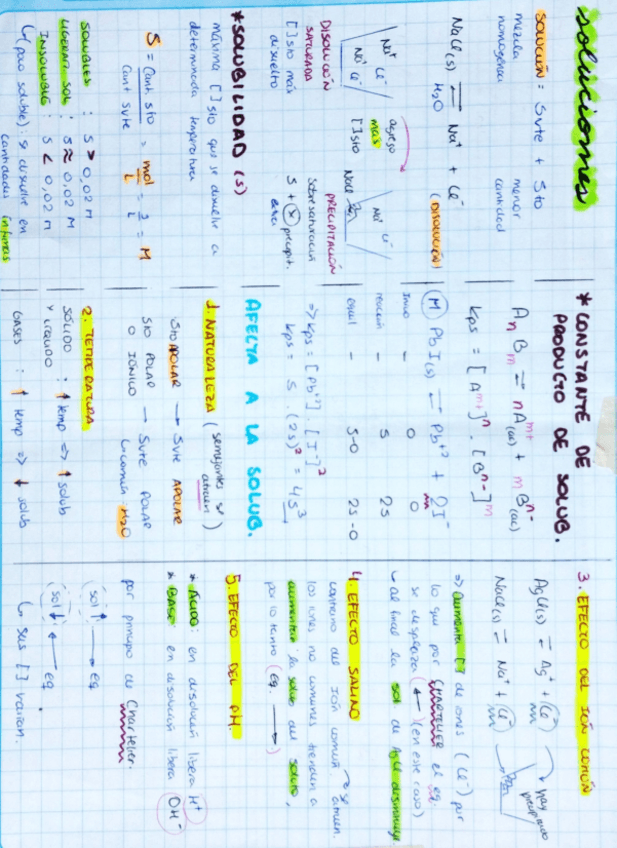 soluciones
SOLUCIÓN = Svte + Sto
mezcla menor
homogénea cantidad
NaCl(s) ⇌ Na⁺ + Cl⁻
H₂O (DISOLUCIÓN)
Na⁺ Cl⁻
Na⁺ Cl⁻
agrego
más
[ ] sto
Na⁺ Cl⁻
NaCl
DISOLUCIÓN
SATURADA
[ ] sto más
disuelto
PRECIPITACIÓN
sobresaturación
precipit.
*SOLUBILIDAD (S)
máxima [ ] sto que se disuelve a
determinada temperatura
S = Cant sto / Cant svte = mol / L = M
SOLUBLES : S > 0,02 M
LIGERAM. SOL : S ≈ 0,02 M
INSOLUBLE : S < 0,02 M
(poco soluble) : se disuelve en
cantidades ínfimas
*CONSTANTE DE
PRODUCTO DE SOLUB.
AnBm ⇌ nA^m+ (ac) + mB^n- (ac)
Kps = [A^m+]^n . [B^n-]^m
(M) PbI(s) ⇌ Pb⁺² + 2I⁻
Inicio - 0 0
reacción - S 2S
equil - S-0 2S-0
=> Kps = [Pb⁺²] . [I⁻]²
Kps = S . (2S)² = 4S³
AFECTA A LA SOLUB.
1. NATURALEZA (semejantes se
atraen)
·Sto APOLAR → Svte APOLAR
Sto POLAR → Svte POLAR
O IÓNICO común H₂O
2. TEMPERATURA
SÓLIDO : ↑ temp => ↑ solub
Y LÍQUIDO
GASES : ↑ temp => ↓ solub
3. EFECTO DEL IÓN COMÚN
AgCl(s) ⇌ Ag⁺ + Cl⁻ hay
precipitado
NaCl(s) ⇌ Na⁺ + Cl⁻
=> Aumenta [ ] de iones (Cl⁻) por
lo que por CHARTELIER el eq.
se desplaza (←) (en este caso)
al final la sol de AgCl disminuye
4. EFECTO SALINO
contrario de IÓN común se atraen.
los iones no comunes tienden a
aumentar la solub del soluto,
por lo tanto (eq. →)
5. EFECTO DEL PH.
* ÁCIDO: en disolución libera H⁺
* BASE: en disolución libera OH⁻
por principio de Chartelier.
(sol ↑) → eq
(sol ↓) ← eq
sus [ ] varían.